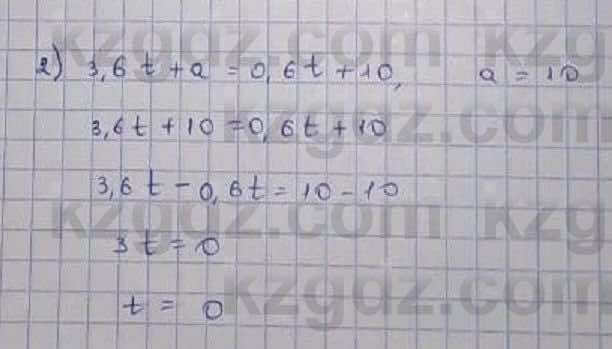 2) 3,6t + a = 0,6t + 10, a = 10
3,6t + 10 = 0,6t + 10
3,6t - 0,6t = 10 - 10
3t = 0
t = 0
kzgdz.com
kzgdz.com
kzgdz.com
kzgdz.com